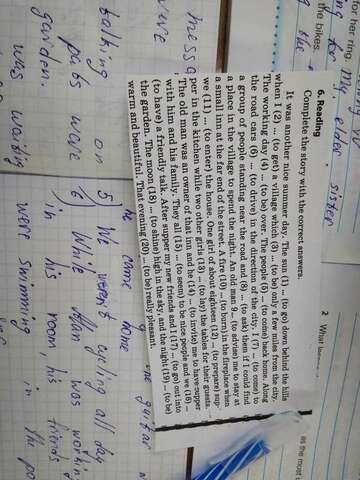 for her ring.
the bikes.
for my elder sister
2 What
as the most
6. Reading
Complete the story with the correct answers.
It was another nice summer day. The sun (1) ... (to go) down behind the hills
when I (2) ... (to get) a village which (3) ... (to be) only a few miles from the city.
The working day (4) ... (to be) over. The people (5) ... (to come) back home. Along
the road cars (6) ... (to drive) in the direction of the city. I (7) ... (to come) to
a group of people standing near the road and (8) ... (to ask) them if I could find
a place in the village to spend the night. An old man 9... (to advise) me to stay at
a small inn at the far end of the street. A fire (10) ... (to burn) in the fireplace when
we (11) ... (to enter) the house. One girl of about eighteen (12) ... (to prepare) sup-
per in the kitchen while two other girls (13) ... (to lay) the tables for their guests.
The old man was an owner of that inn and he (14) ... (to invite) me to have supper
with him and his family. They all (15) ... (to seem) to be nice people and we (16) ...
(to have) a friendly talk. After supper my new friends and I (17) ... (to go) out into
the garden. The moon (18) ... (to shine) high in the sky, and the night (19) ... (to be)
warm and beautiful. That evening (20) ... (to be) really pleasant.
messa
were
talking
pats were
garden.
was waiting
he came home
guitar
5) We went cycling all day
6) While Allan was working
in his room his friends
were swimming in the po